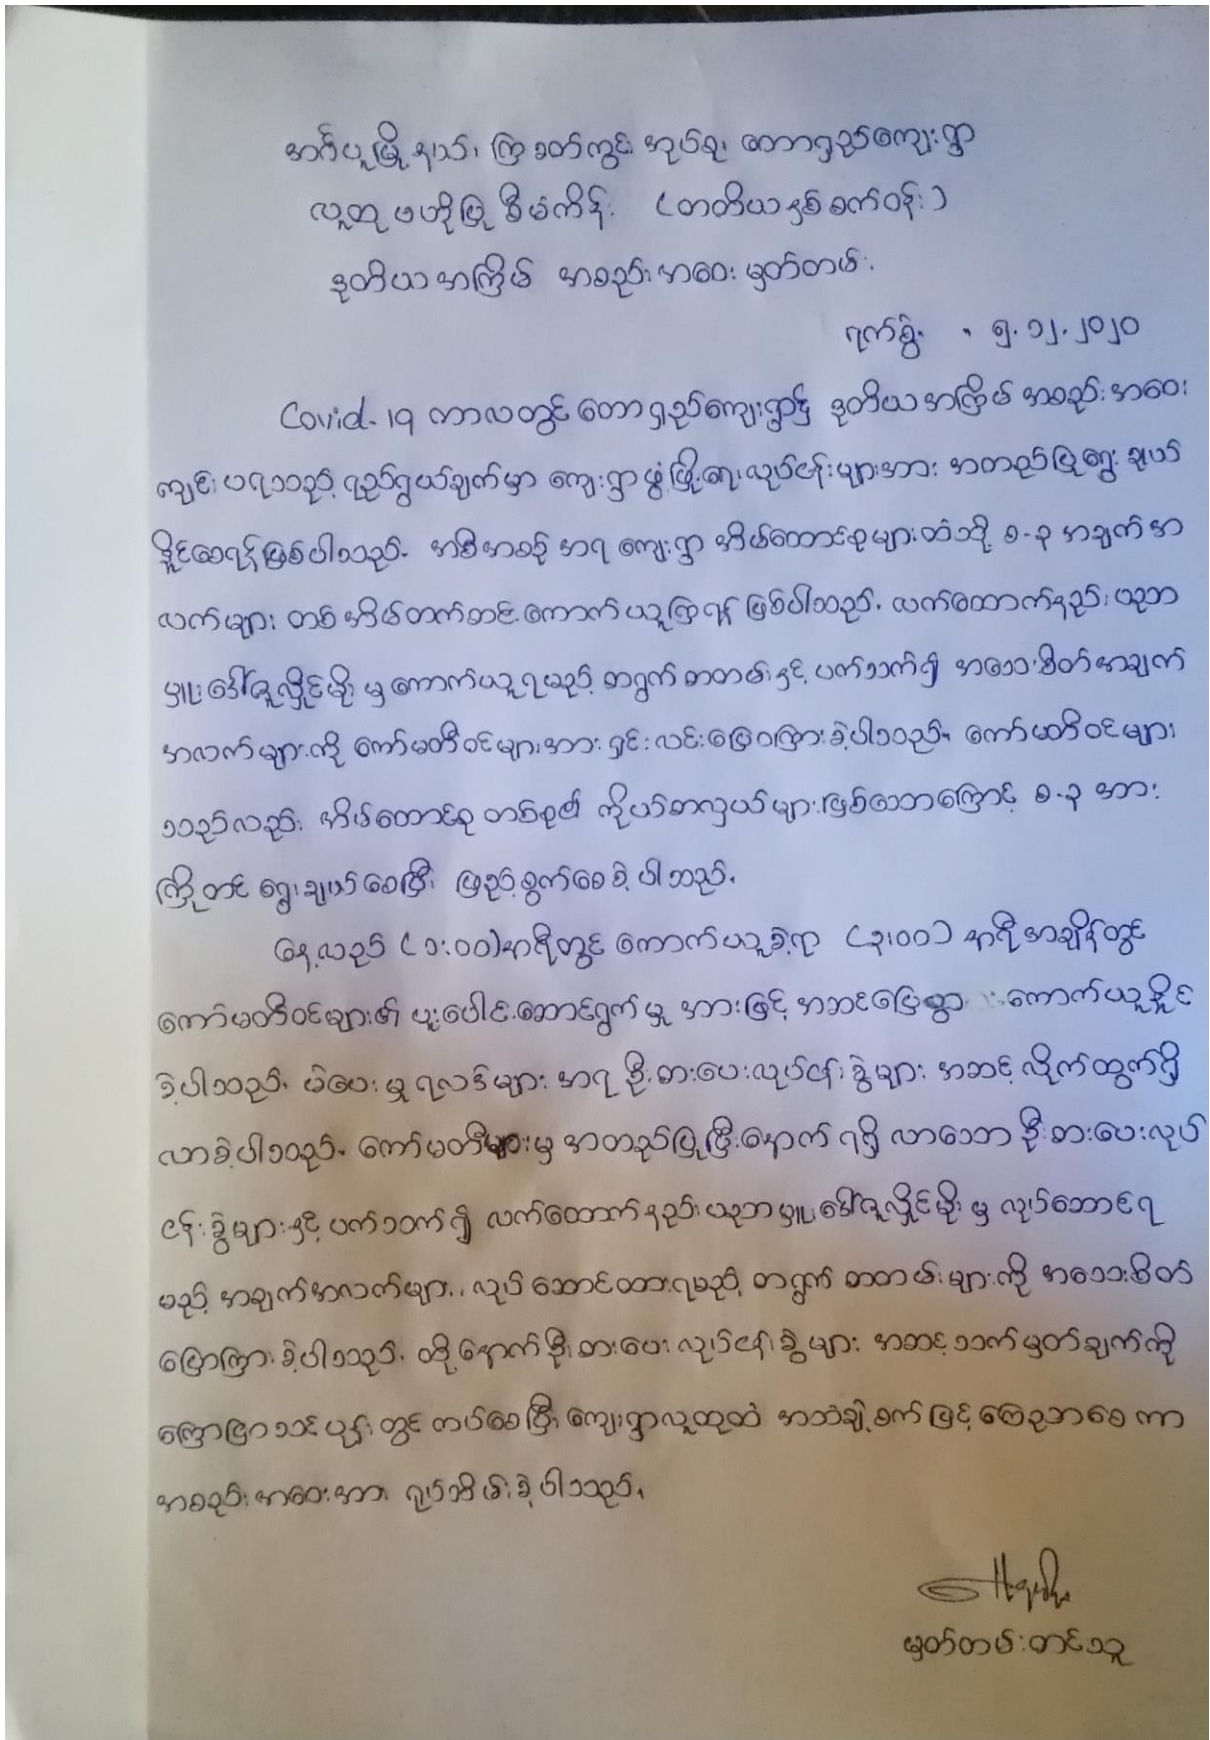 အင်္ဂပူမြို့နယ်၊ ကြခတ်ကွင်း အုပ်စု၊ တောရှည်ကျေးရွာ
လူထု ဗဟိုပြု စီမံကိန်း (တတိယနှစ်စက်ဝန်း)
ဒုတိယအကြိမ် အစည်းအဝေး မှတ်တမ်း
ရက်စွဲ၊ ၅.၁၂.၂၀၂၀
Covid-19 ကာလတွင် တောရှည်ကျေးရွာ၌ ဒုတိယအကြိမ် အစည်းအဝေး
ကျင်းပရသည့် ရည်ရွယ်ချက်မှာ ကျေးရွာဖွံ့ဖြိုးရေးလုပ်ငန်းများအား အတည်ပြုရွေးချယ်
နိုင်စေရန်ဖြစ်ပါသည်. အစီအစဉ်အရ ကျေးရွာ အိမ်ထောင်စုများထံသို့ စ-၃ အချက်အ
လက်များ တစ်အိမ်တက်ဆင်းကောက်ယူကြရန် ဖြစ်ပါသည်. လက်ထောက်နည်းပညာ
မှူး ဒေါ်ဇူလှိုင်မိုး မှ ကောက်ယူရမည့် စာရွက်စာတမ်းနှင့် ပက်သက်၍ အသေးစိတ်အချက်
အလက်များကို ကော်မတီဝင်များအား ရှင်းလင်းပြောကြားခဲ့ပါသည်။ ကော်မတီဝင်များ
သည်လည်း အိမ်ထောင်စု တစ်စု၏ ကိုယ်စာလှယ်များဖြစ်သောကြောင့် စ-၃ အား
ကြိုတင် ရွေးချယ်စေပြီး ဖြည့်စွက်စေခဲ့ပါသည်.
နေ့လည် (၁:၀၀)နာရီတွင် ကောက်ယူခဲ့ရာ (၃:၀၀) နာရီအချိန်တွင်
ကော်မတီဝင်များ၏ ပူးပေါင်းဆောင်ရွက်မှု အားဖြင့် အဆင်ပြေစွာ ကောက်ယူနိုင်
ခဲ့ပါသည်. မဲပေးမှု ရလဒ်များ အရ ဦးစားပေးလုပ်ငန်းခွဲများ အဆင့်လိုက်ထွက်ရှိ
လာခဲ့ပါသည်. ကော်မတီများမှ အတည်ပြုပြီးနောက် ရရှိလာသော ဦးစားပေးလုပ်
ငန်းခွဲများနှင့် ပက်သက်၍ လက်ထောက်နည်းပညာမှူး ဒေါ်ဇူလှိုင်မိုး မှ လုပ်ဆောင်ရ
မည့် အချက်အလက်များ, လုပ်ဆောင်ထားရမည့် စာရွက်စာတမ်းများကို အသေးစိတ်
ပြောကြားခဲ့ပါသည်. ထို့နောက် ဦးစားပေး လုပ်ငန်းခွဲများ အဆင့်သက်မှတ်ချက်ကို
ကြောငြာသင်ပုန်းတွင် ကပ်စေပြီး ကျေးရွာလူထုထံ အသံချဲ့စက်ဖြင့် ကြေညာစေကာ
အစည်းအဝေးအား ရုပ်သိမ်းခဲ့ပါသည်.
မှတ်တမ်းတင်သူ